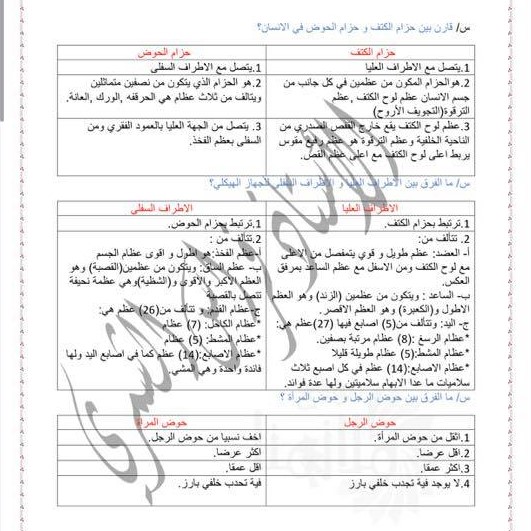 س/ قارن بين حزام الكتف و حزام الحوض في الانسان؟
حزام الكتف
حزام الحوض
1.يتصل مع الاطراف العليا
1.يتصل مع الاطراف السفلى
2.هوالحزام المكون من عظمين في كل جانب من
جسم الانسان عظم لوح الكتف ,عظم
الترقوة(التجويف الأروح)
2. هو الحزام الذي يتكون من نصفين متماثلين
ويتالف من ثلاث عظام هي الحرقفه ,الورك ,العانة.
3.عظم لوح الكتف يقع خارج القفص الصدري من
الناحية الخلفية وعظم الترقوة هو عظم رفيع مقوس
يربط اعلى لوح الكتف مع اعلى عظم القص.
3. يتصل من الجهة العليا بالعمود الفقري ومن
السفلى بعظم الفخذ.
س/ ما الفرق بين الأطراف العليا و الأطراف السفلى للجهاز الهيكلي؟
الاطراف العليا
الاطراف السفلى
1.ترتبط بحزام الكتف.
1.ترتبط بحزام الحوض.
2. تتألف من:
2.تتألف من :
أ- العضد: عظم طويل و قوي يتمفصل من الاعلى
مع لوح الكتف ومن الاسفل مع عظم الساعد بمرفق
العكس.
ب- الساعد : ويتكون من عظمين (الزند) و هو العظم
الاطول و(الكعبرة) وهو العظم الاقصر.
ج- اليد: وتتألف من(5) اصابع فيها (27)عظم هي:
*عظام الرسغ :(8) عظام مرتبة بصفين.
*عظام المشط:(5) عظام طويلة قليلا
*عظام الاصابع:(14) عظم في كل اصبع ثلاث
سلاميات ما عدا الابهام سلاميتين ولها عدة فوائد.
أ-عظم الفخذ:هو اطول و اقوى عظام الجسم
ب- عظم الساق: ويتكون من عظمين(القصبة) وهو
العظم الاكبر والاقوى و(الشظية)وهي عظمة نحيفة
تتصل بالقصبة
ج-عظام القدم: و تتألف من(26) عظم هي:
*عظام الكاحل: (7) عظام
*عظام المشط: (5) عظام
*عظام الاصابع:(14) عظم كما في اصابع اليد ولها
فائدة واحدة وهي المشي.
س/ ما الفرق بين حوض الرجل و حوض المرأة ؟
حوض الرجل
حوض المرأة
1.اثقل من حوض المرأة.
اخف نسبيا من حوض الرجل.
2.اقل عرضا.
اكثر عرضا.
3.اكثر عمقا.
اقل عمقا.
4.لا يوجد فية تجدب خلفي بارز
فية تحدب خلفي بارز.